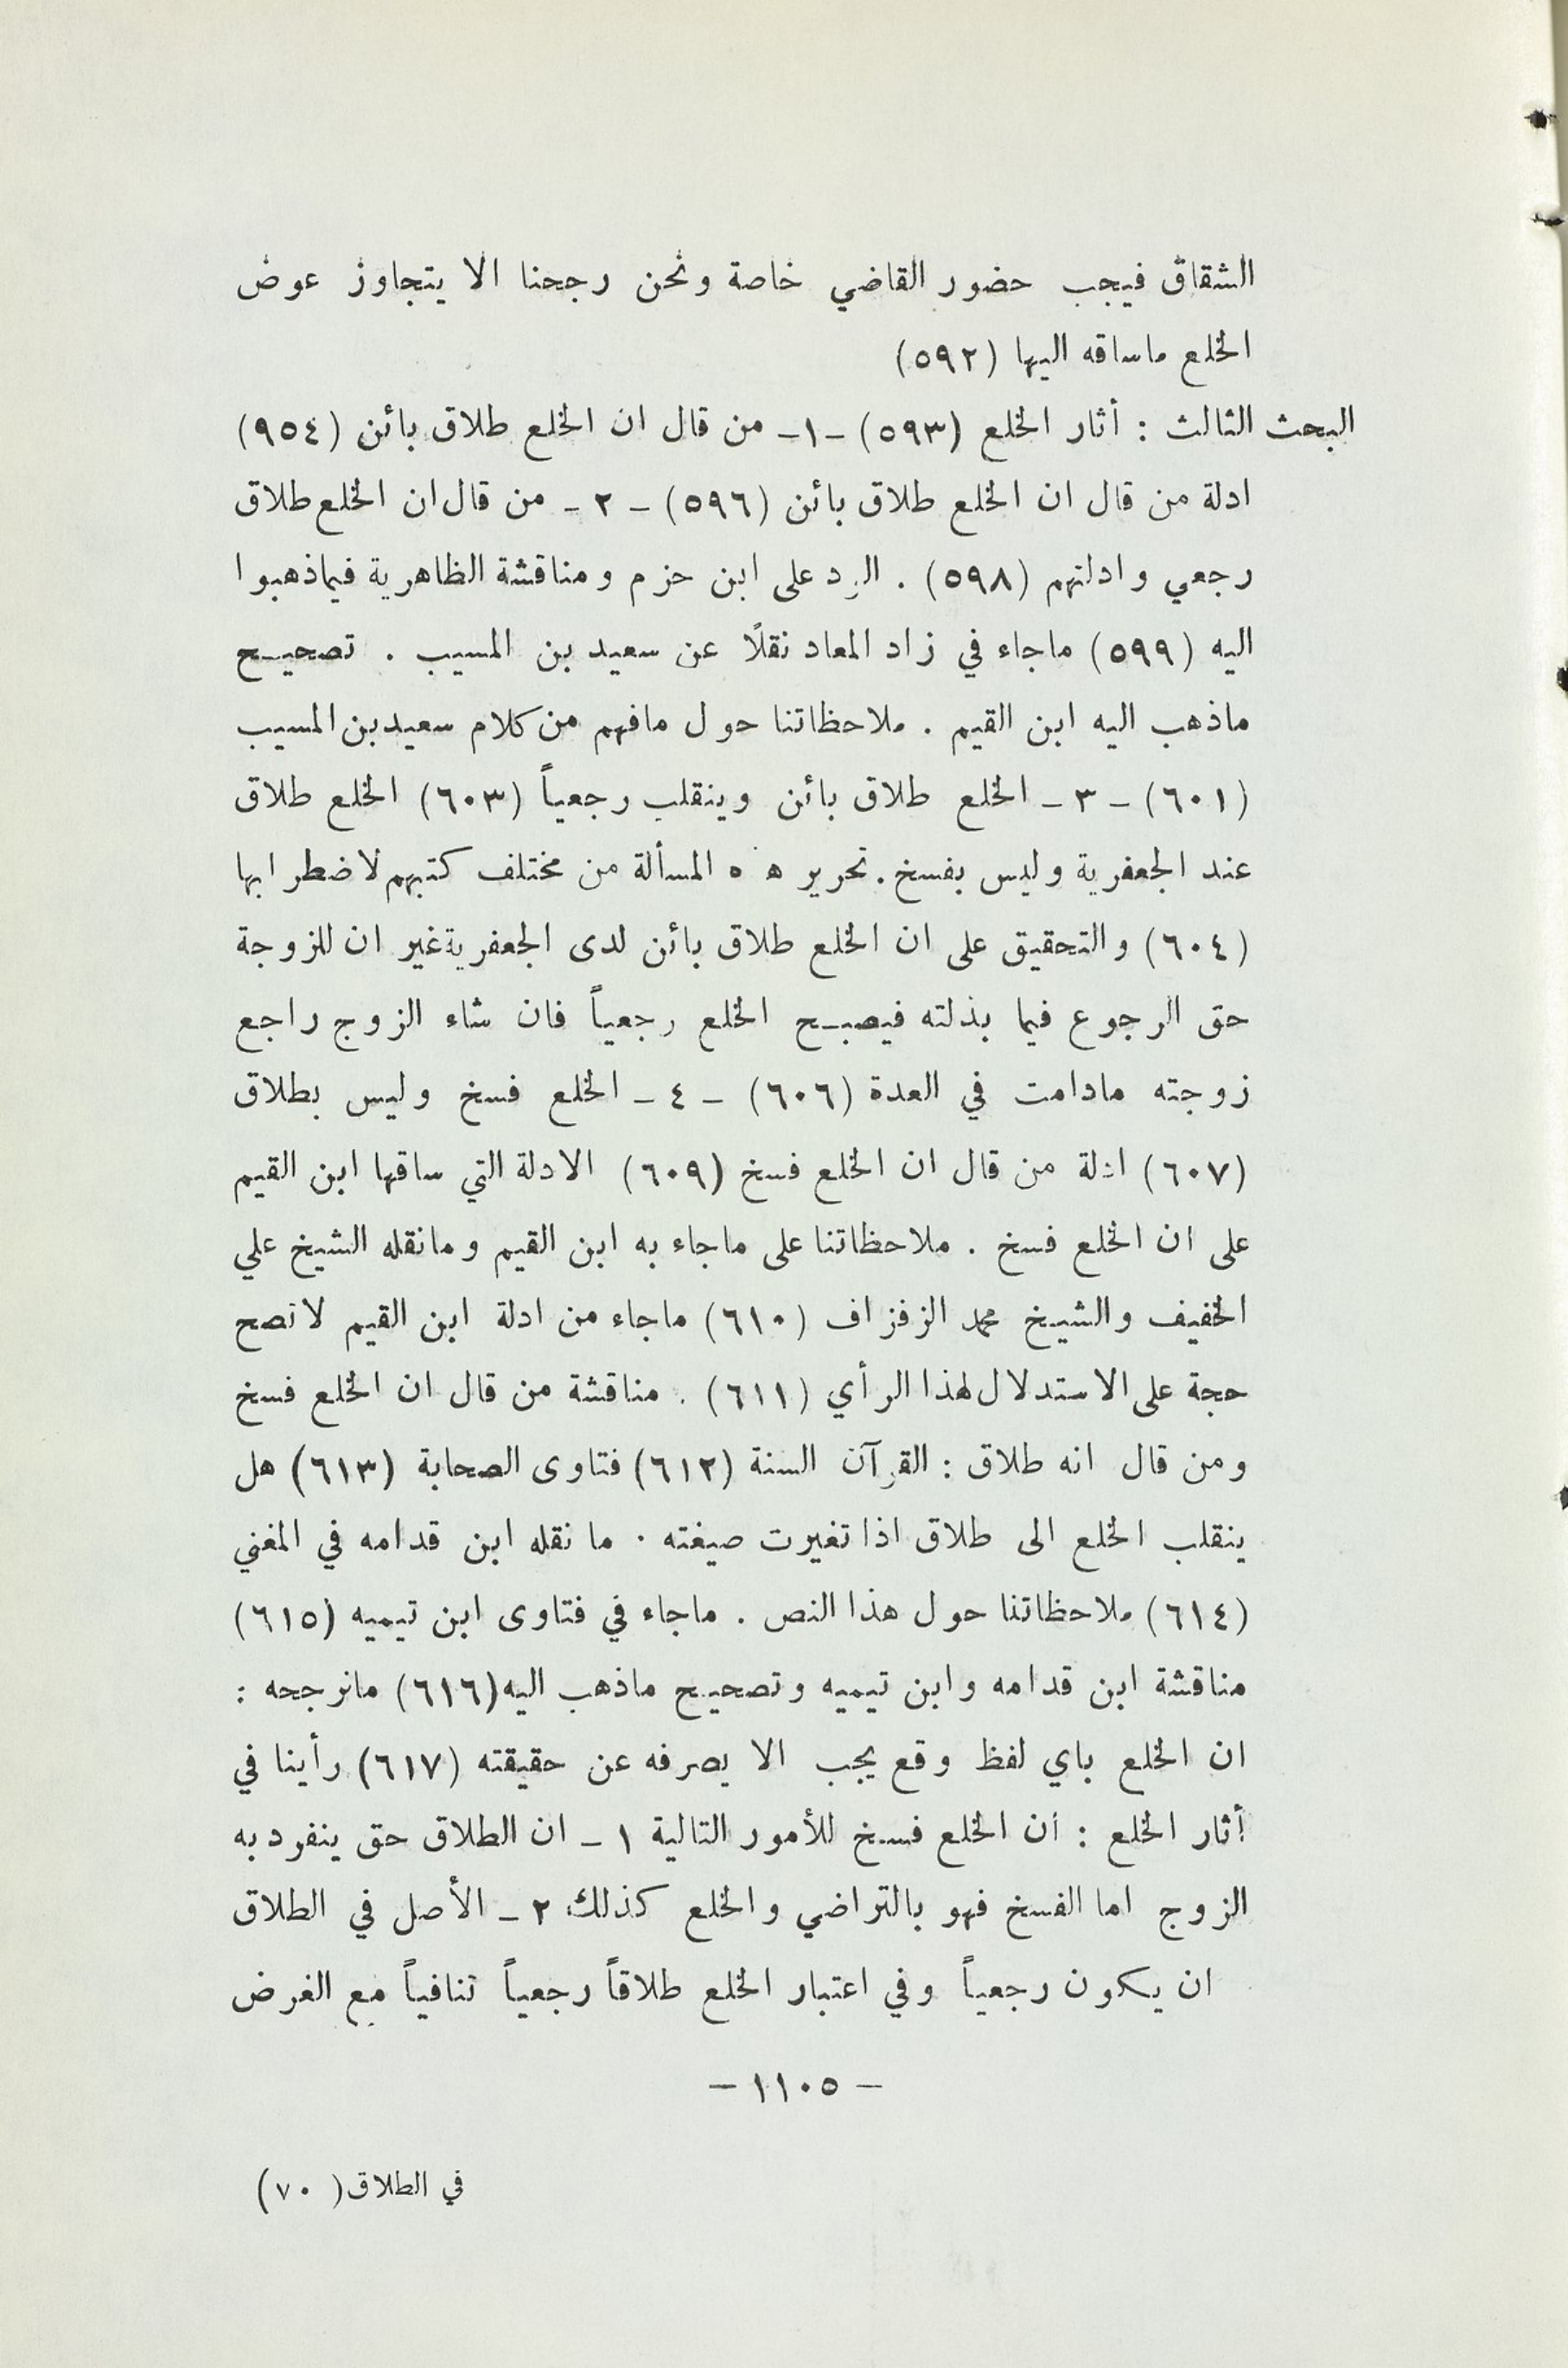 الشقاق فيجب حضور القاضي خاصة ونحن رجحنا الا يتجاوز عوض
الخلع ماساقه اليها (٥٩٢)
البحث الثالث : أثار الخلع (٥٩٣) -١- من قال ان الخلع طلاق بائن (٩٥٤)
ادلة من قال ان الخلع طلاق بائن (٥٩٦) - ٢ - من قال ان الخلع طلاق
رجعي وادلتهم (٥٩٨) . الرد على ابن حزم ومناقشة الظاهرية فيماذهبوا
اليه (٥٩٩) ماجاء في زاد المعاد نقلًا عن سعيد بن المسيب . تصحيح
ماذهب اليه ابن القيم . ملاحظاتنا حول مافهم من كلام سعيد بن المسيب
(٦٠١) - ٣ - الخلع طلاق بائن وينقلب رجعياً (٦٠٣) الخلع طلاق
عند الجعفرية وليس بفسخ . تحرير ه ه المسألة من مختلف كتبهم لاضطرابها
(٦٠٤) والتحقيق على ان الخلع طلاق بائن لدى الجعفرية غير ان للزوجة
حق الرجوع فيما بذلته فيصبح الخلع رجعياً فان شاء الزوج راجع
زوجته مادامت في العدة (٦٠٦) - ٤ - الخلع فسخ وليس بطلاق
(٦٠٧) ادلة من قال ان الخلع فسخ (٦٠٩) الادلة التي ساقها ابن القيم
على ان الخلع فسخ . ملاحظاتنا على ماجاء به ابن القيم ومانقله الشيخ علي
الخفيف والشيخ محمد الزفزاف (٦١٠) ماجاء من ادلة ابن القيم لاتصح
حجة على الاستدلال لهذا الرأي (٦١١) . مناقشة من قال ان الخلع فسخ
ومن قال انه طلاق : القرآن السنة (٦١٢) فتاوى الصحابة (٦١٣) هل
ينقلب الخلع الى طلاق اذا تغيرت صيغته . ما نقله ابن قدامه في المغني
(٦١٤) ملاحظاتنا حول هذا النص . ماجاء في فتاوى ابن تيميه (٦١٥)
مناقشة ابن قدامه وابن تيميه وتصحيح ماذهب اليه (٦١٦) مانرجحه :
ان الخلع باي لفظ وقع يجب الا يصرفه عن حقيقته (٦١٧) رأينا في
أثار الخلع : ان الخلع فسخ للأمور التالية ١ - ان الطلاق حق ينفرد به
الزوج اما الفسخ فهو بالتراضي والخلع كذلك ٢ - الأصل في الطلاق
ان يكون رجعياً وفي اعتبار الخلع طلاقاً رجعياً تنافياً مع الغرض
- ١١٠٥ -
في الطلاق ( ٧٠)